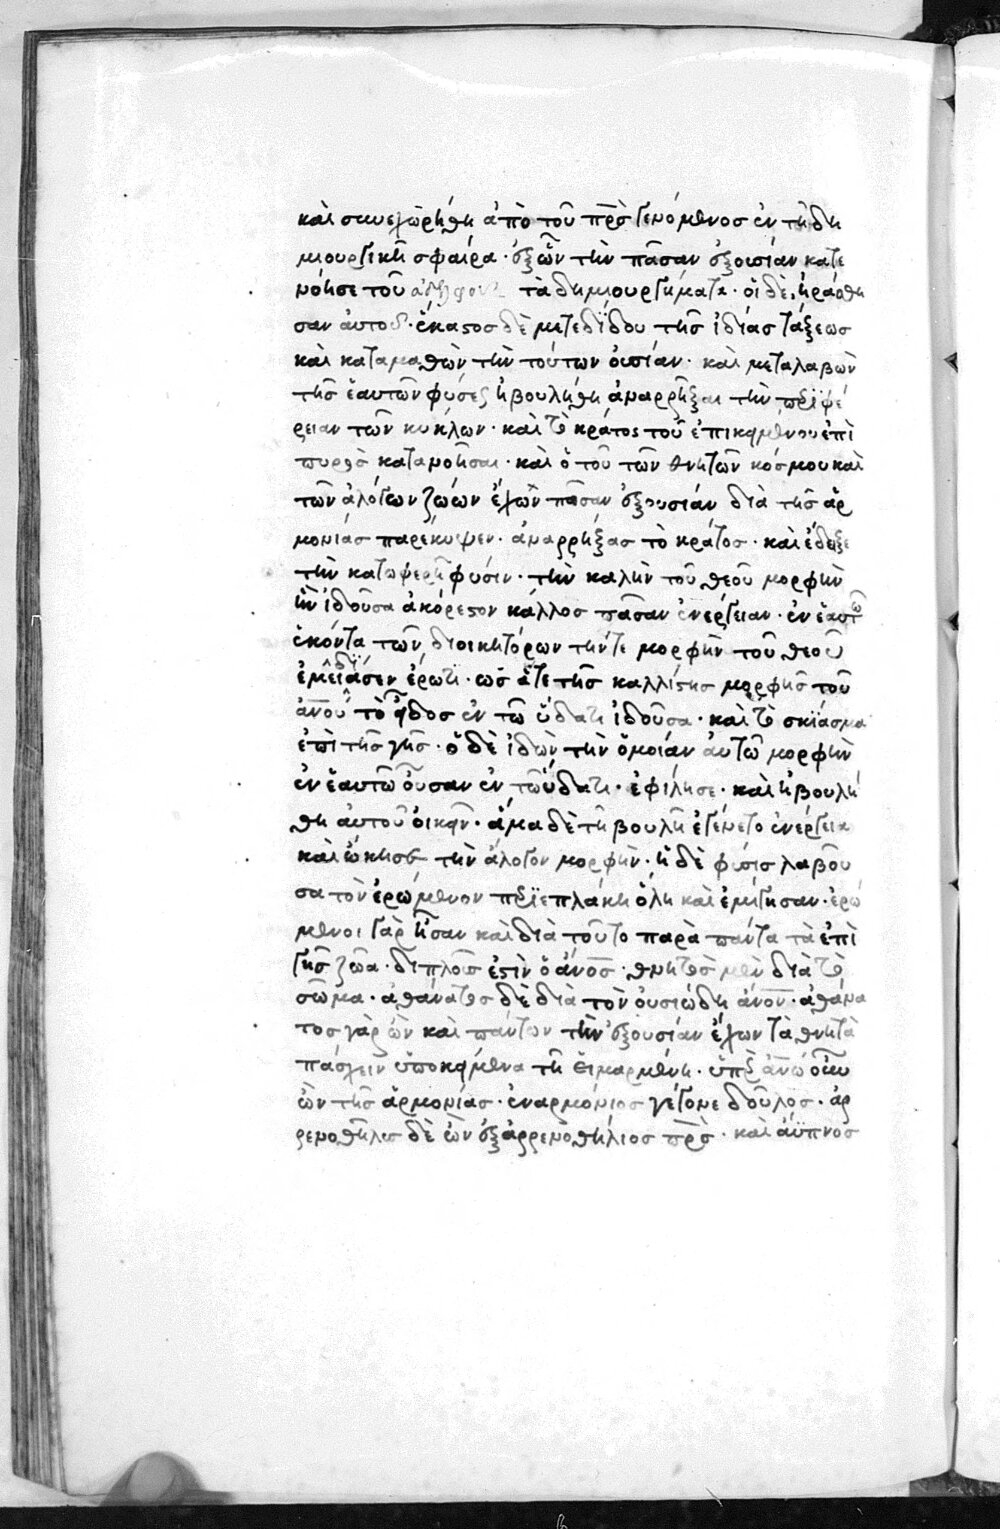 καὶ συνεχωρήθη ἀπὸ τοῦ πρ̅σ̅ γενόμενοσ ἐν τῆ δη
μιουργικῆ σφαίρα· ἕξων τὴν πᾶσαν ἐξουσίαν κατε
νόησε τοῦ ἀδελφοῦ τὰ δημιουργήματα· οἱ δὲ ἠράσθη
σαν ἀυτοῦ· ἕκαστος δὲ μετεδίδου τῆσ ἰδίασ τάξεωσ
καὶ καταμαθὼν τὴν τούτων οὐσίαν· καὶ μεταλαβὼν
τῆσ ἑαυτῶν φύσεως ἠβουλήθη ἀναρρῆξαι τὴν περιφέ
ρειαν τῶν κύκλων· καὶ τὸ κράτος τοῦ ἐπικειμένου ἐπὶ
πυρὸσ κατανοῆσαι· καὶ ὁ τοῦ τῶν θνητῶν κόσμου καὶ
τῶν ἀλόγων ζώων ἔχων πᾶσαν ἐξουσίαν διὰ τῆσ ἁρ
μονίασ παρέκυψεν· ἀναρρήξασ τὸ κράτοσ· καὶ ἔδειξε
τὴν κατωφερῆ φύσιν· τὴν καλὴν τοῦ θεοῦ μορφὴν
ἣν ἰδοῦσα ἀκόρεστον κάλλοσ πᾶσαν ἐνέργειαν· ἐν ἑαυτῶ
ἔχοντα τῶν διοικητόρων τήν τε μορφὴν τοῦ θεοῦ
ἐμειδίασεν ἔρωτι· ὡσ ἅτε τῆσ καλλίστησ μορφῆσ τοῦ
ἀν̅ο̅υ̅ τὸ εἶδοσ ἐν τῶ ὕδατι ἰδοῦσα· καὶ τὸ σκίασμα
ἐπὶ τῆσ γῆσ· ὁ δὲ ἰδὼν τὴν ὁμοίαν ἀυτῶ μορφὴν
ἐν ἑαυτῶ οὖσαν ἐν τῶ ὕδατι· ἐφίλησε· καὶ ἠβουλή
θη ἀυτοῦ οἰκεῖν· ἅμα δὲ τῆ βουλῆ ἐγένετο ἐνέργεια
καὶ ὤκησε τὴν ἄλογον μορφὴν· ἡ δὲ φύσισ λαβοῦ
σα τὸν ἐρώμενον περιεπλάκη ὅλη καὶ ἐμίγησαν· ἐρώ
μενοι γὰρ ἦσαν καὶ διὰ τοῦτο παρὰ πάντα τὰ ἐπὶ
γῆσ ζῶα· διπλοῦσ ἐστὶν ὁ ἄν̅ο̅σ̅· θνητὸσ μὲν διὰ τὸ
σῶμα· ἀθάνατοσ δὲ διὰ τὸν οὐσιώδη ἄν̅ο̅ν̅· ἀθάνα
τοσ γὰρ ὢν καὶ πάντων τὴν ἐξουσίαν ἔχων τὰ θνητὰ
πάσχειν ὑποκείμενα τῆ εἱμαρμένη· ὑπεράνω οὖν
ὢν τῆσ ἁρμονίασ· ἐναρμόνιοσ γέγονε δοῦλοσ· ἀρ
ρενόθηλυσ δὲ ὢν ἐξ ἀρρενοθήλιοσ πρ̅σ̅· καὶ ἄϋπνοσ